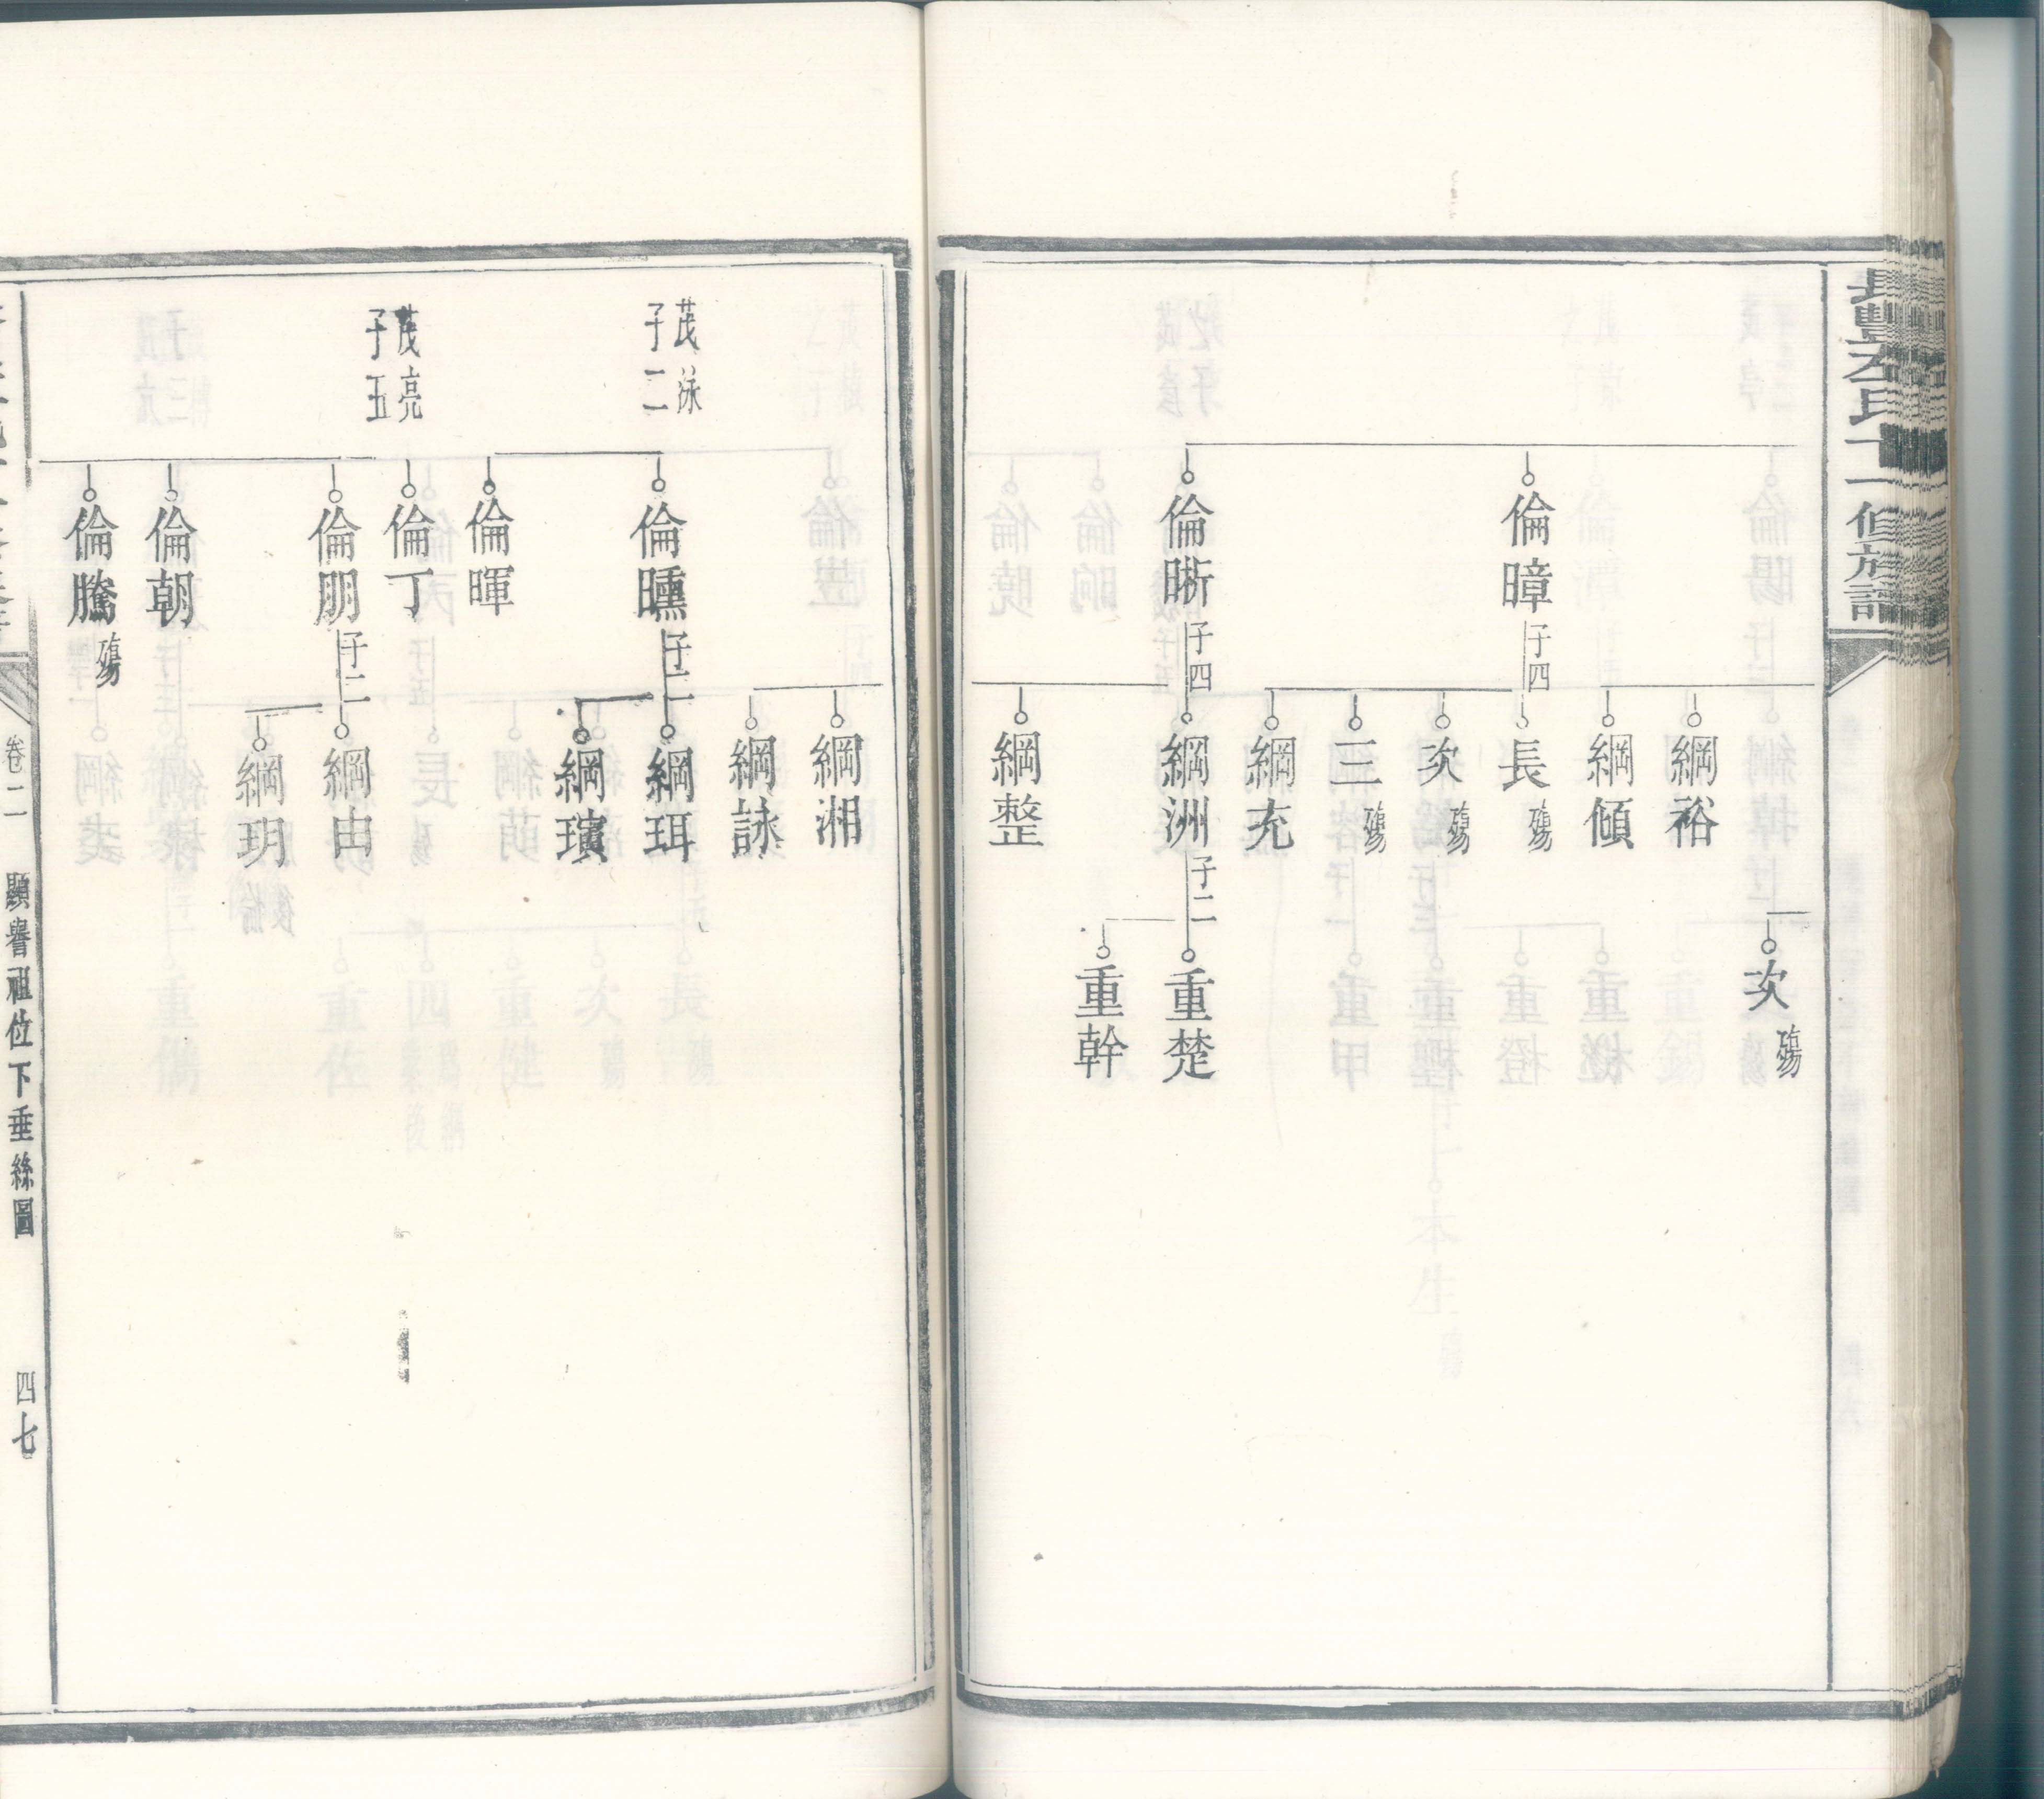 倫暲 子四
倫晰 子四
綱裕
綱傾
長 殤
次 殤
三 殤
綱充
綱洲 子二
綱整
次 殤
重楚
重幹
茂泳
子二
茂亮
子五
倫曛 子二
倫暉
倫丁
倫朋 子二
倫朝
倫騰 殤
綱湘
綱詠
綱珥
綱璸
綱由
綱玥
卷二
顯譽祖位下垂絲圖
四七